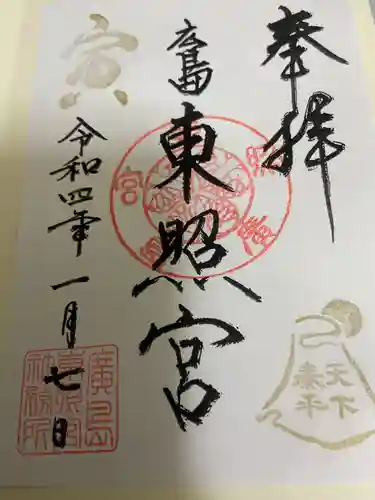 奉拝
廣島
東照宮
令和四年一月七日
寅
天下
泰平
廣島
東照宮
社務所